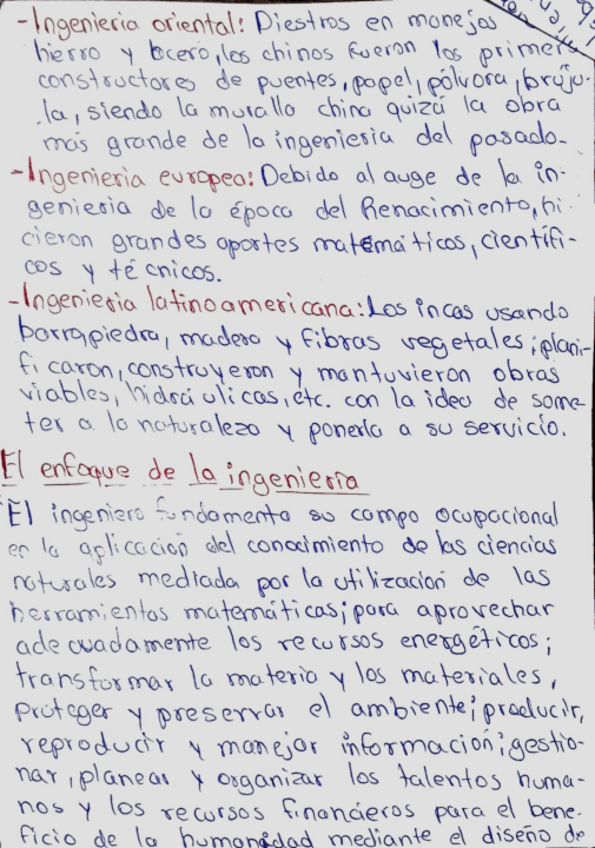 -Ingenieria oriental: Diestros en manejos
hierro y acero, los chinos fueron los primer
constructores de puentes, papel, pólvora, brúju-
la, siendo la muralla china quizá la obra
más grande de la ingenieria del pasado.
-Ingenieria europea: Debido al auge de la in-
genieria de la época del Renacimiento, hi-
cieron grandes aportes matemáticos, científi-
cos y técnicos.
-Ingenieria latinoamericana: Los incas usando
barro, piedra, madera y fibras vegetales; plani-
ficaron, construyeron y mantuvieron obras
viables, hidráulicas, etc. con la idea de some-
ter a la naturaleza y ponerla a su servicio.
El enfoque de la ingenieria
El ingeniero fundamenta su campo ocupacional
en la aplicación del conocimiento de las ciencias
naturales mediada por la utilización de las
herramientas matemáticas; para aprovechar
adecuadamente los recursos energéticos;
transformar la materia y los materiales,
proteger y preservar el ambiente; producir,
reproducir y manejar información; gestio-
nar, planear y organizar los talentos huma-
nos y los recursos financieros para el bene-
ficio de la humanidad mediante el diseño de